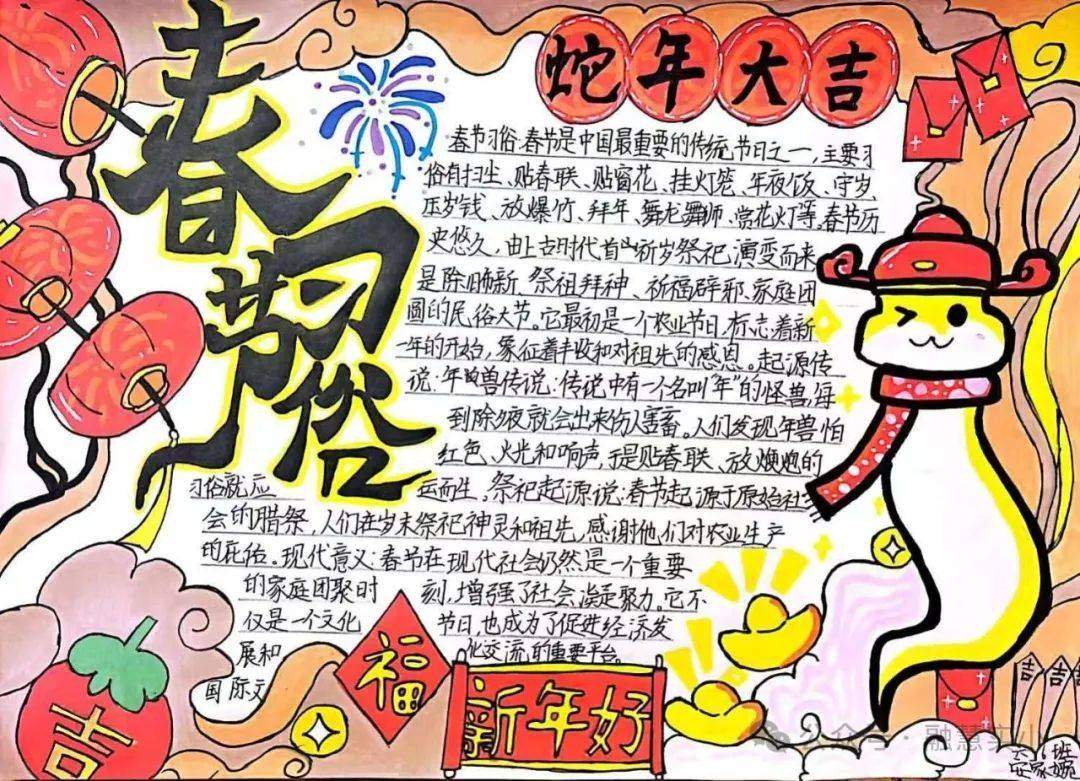 蛇年大吉
春节习俗
春节习俗:春节是中国最重要的传统节日之一,主要习
俗有扫尘、贴春联、贴窗花、挂灯笼、年夜饭、守岁、
压岁钱、放爆竹、拜年、舞龙舞狮、赏花灯等。春节历
史悠久,由上古时代首岁祈岁祭祀演变而来
是除旧布新、祭祖拜神、祈福辟邪、家庭团
圆的民俗大节。它最初是一个农业节日,标志着新
一年的开始,象征着丰收和对祖先的感恩。起源传
说:年兽传说:传说中有一个名叫“年”的怪兽,每
到除夕夜就会出来伤人害畜。人们发现年兽怕
红色、火光和响声,于是贴春联、放炮的
习俗就应运而生。祭祀起源说:春节起源于原始社
会的腊祭,人们在岁末祭祀神灵和祖先,感谢他们对农业生产
的庇佑。现代意义:春节在现代社会仍然是一个重要
的家庭团聚时刻,增强了社会凝聚力。它不
仅是一个文化节日,也成为了促进经济发
展和
国际文化交流的重要平台。
福
新年好
吉
吉吉吉
公众号·融慧实小